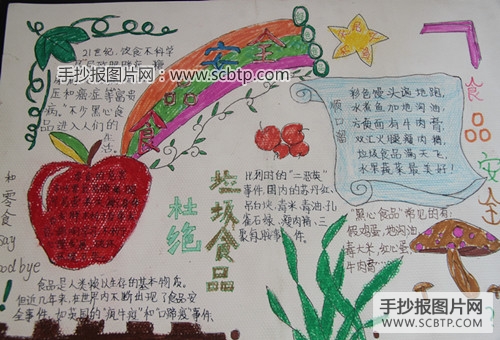 21世纪，饮食不科学
手抄报图片网：
www.scbtp.com
压和癌症等富贵
病。不少黑心食
品进入人们的
生活。
食品安全
顺口溜
彩色馒头满地跑，
水煮鱼加地沟油，
方便面有牛肉膏，
双汇火腿瘦肉精，
垃圾食品满天飞，
水果蔬菜最美好！
食品安全
和零食
say
goodbye
！
杜绝
垃圾食品
比利时的“二恶英”
事件，国内的苏丹红、
吊白块、毒米、毒油、孔
雀石绿、瘦肉精、三
聚氰胺事件。
“黑心食品”常见的有：
假鸡蛋，地沟油，
毒大米，红心蛋，
牛肉膏…
食品是人类赖以生存的基本物质。
但近几年来，在世界内不断出现了食品安
全事件，如英国的“疯牛斑”和“口蹄疫”事件、
手抄报图片网
WWW.SCBTP.COM